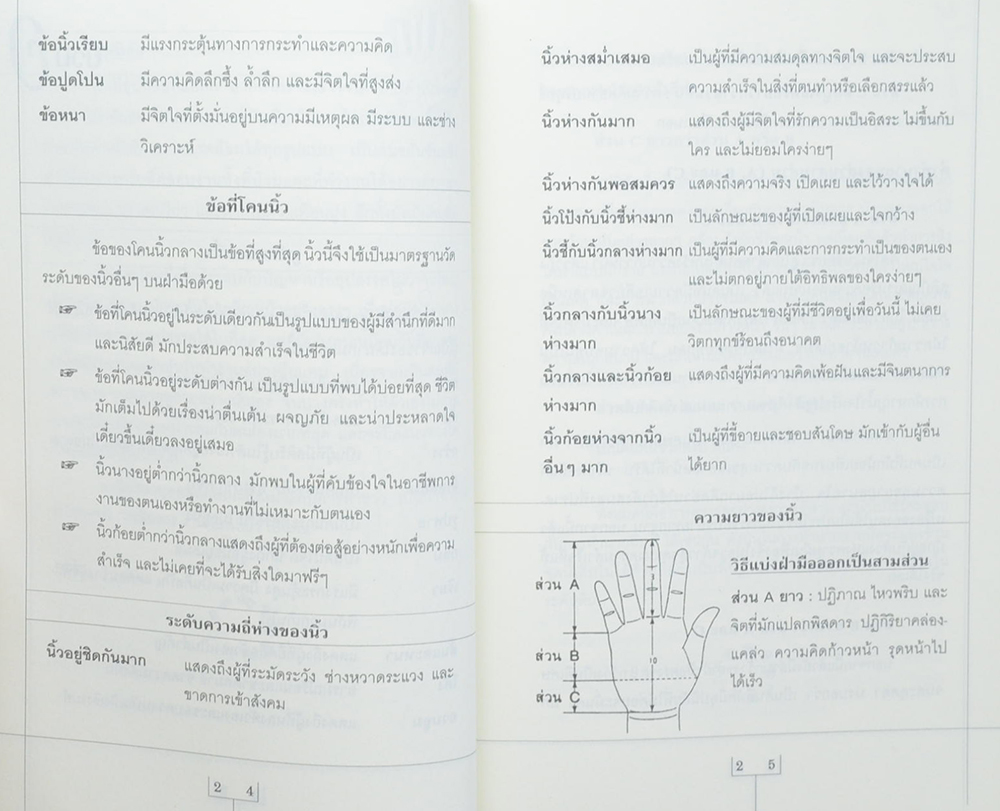 ข้อนิ้วเรียบ มีแรงกระตุ้นทางการกระทำและความคิด
ข้อปูดโปน มีความคิดลึกซึ้ง ล้ำลึก และมีจิตใจที่สูงส่ง
ข้อหนา มีจิตใจที่ตั้งมั่นอยู่บนความมีเหตุผล มีระบบ และช่าง
วิเคราะห์
ข้อที่โคนนิ้ว
ข้อของโคนนิ้วกลางเป็นข้อที่สูงที่สุด นิ้วนี้จึงใช้เป็นมาตรฐานวัด
ระดับของนิ้วอื่นๆ บนฝ่ามือด้วย
☞ ข้อที่โคนนิ้วอยู่ในระดับเดียวกันเป็นรูปแบบของผู้มีสำนึกที่ดีมาก
และนิสัยดี มักประสบความสำเร็จในชีวิต
☞ ข้อที่โคนนิ้วอยู่ระดับต่างกัน เป็นรูปแบบที่พบได้บ่อยที่สุด ชีวิต
มักเต็มไปด้วยเรื่องน่าตื่นเต้น ผจญภัย และน่าประหลาดใจ
เดี๋ยวขึ้นเดี๋ยวลงอยู่เสมอ
☞ นิ้วนางอยู่ต่ำกว่านิ้วกลาง มักพบในผู้ที่คับข้องใจในอาชีพการ
งานของตนเองหรือทำงานที่ไม่เหมาะกับตนเอง
☞ นิ้วก้อยต่ำกว่านิ้วกลางแสดงถึงผู้ที่ต้องต่อสู้อย่างหนักเพื่อความ
สำเร็จ และไม่เคยที่จะได้รับสิ่งใดมาฟรีๆ
ระดับความถี่ห่างของนิ้ว
นิ้วอยู่ชิดกันมาก แสดงถึงผู้ที่ระมัดระวัง ช่างหวาดระแวง และ
ขาดการเข้าสังคม
2 4
นิ้วห่างสม่ำเสมอ เป็นผู้ที่มีความสมดุลทางจิตใจ และจะประสบ
ความสำเร็จในสิ่งที่ตนทำหรือเลือกสรรแล้ว
นิ้วห่างกันมาก แสดงถึงผู้มีจิตใจที่รักความเป็นอิสระ ไม่ขึ้นกับ
ใคร และไม่ยอมใครง่ายๆ
นิ้วห่างกันพอสมควร แสดงถึงความจริง เปิดเผย และไว้วางใจได้
นิ้วโป้งกับนิ้วชี้ห่างมาก เป็นลักษณะของผู้ที่เปิดเผยและใจกว้าง
นิ้วชี้กับนิ้วกลางห่างมาก เป็นผู้ที่มีความคิดและการกระทำเป็นของตนเอง
และไม่ตกอยู่ภายใต้อิทธิพลของใครง่ายๆ
นิ้วกลางกับนิ้วนาง เป็นลักษณะของผู้ที่มีชีวิตอยู่เพื่อวันนี้ ไม่เคย
ห่างมาก วิตกทุกข์ร้อนถึงอนาคต
นิ้วกลางและนิ้วก้อย แสดงถึงผู้ที่มีความคิดเพ้อฝันและมีจินตนาการ
ห่างมาก
นิ้วก้อยห่างจากนิ้ว เป็นผู้ที่ขี้อายและชอบสันโดษ มักเข้ากับผู้อื่น
อื่นๆ มาก ได้ยาก
ความยาวของนิ้ว
ส่วน A
ส่วน B
ส่วน C
10
วิธีแบ่งฝ่ามือออกเป็นสามส่วน
ส่วน A ยาว : ปฏิภาณ ไหวพริบ และ
จิตที่มักแปลกพิสดาร ปฏิกิริยาคล่อง-
แคล่ว ความคิดก้าวหน้า รุดหน้าไป
ได้เร็ว
2 5